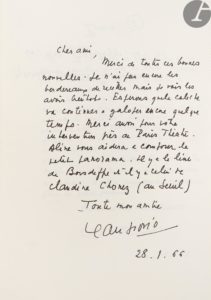 Cher ami,
Merci de toutes ces bonnes
nouvelles. Je n'ai pas encore les
bordereaux de recettes mais je vais les
avoir bientôt. Espérons que le
va continuer à galoper encore quelque
temps. Merci aussi pour votre
intervention près de Paris Théâtre.
Aline vous aidera à composer le
petit panorama. Il y a le livre
de Boisdeffre et il y a celui de
Claudine Chonez (au Seuil)
Toute mon amitié
Jean Giono
28.1.66